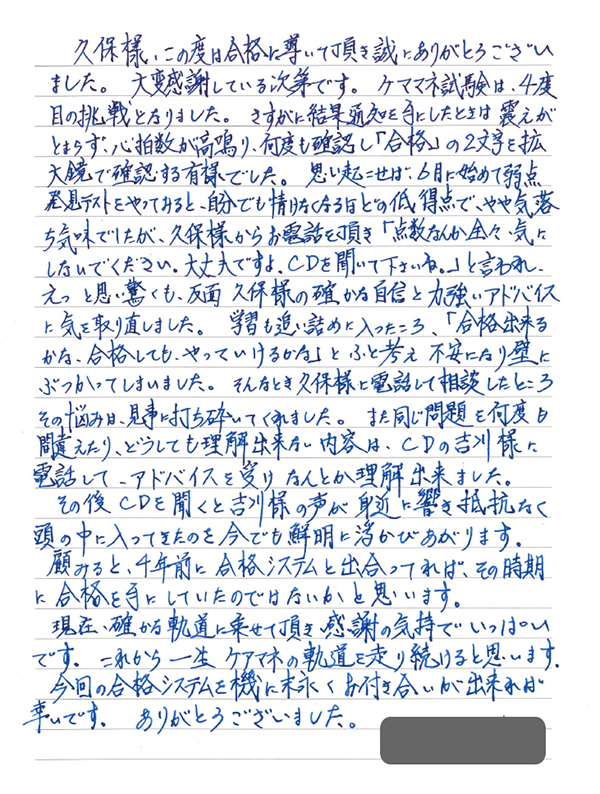 久保様、この度は合格に導いて頂き誠にありがとうござい
ました。 大変感謝している次第です。 ケママネ試験は、4度
目の挑戦となりました。 さすがに結果通知を手にしたときは震えが
とまらず、心拍数が高鳴り、何度も確認し「合格」の2文字を拡
大鏡で確認する有様でした。 思い起こせば、6月に始めて弱点
発見テストをやっておると、自分でも情けなくなる日どの低得点で、やや気落
ち気味でしたが、久保様からお電話を頂き「点数なんか全々、気に
しないでください。大丈夫ですよ。CDを聞いて下さいね。」と言われ、
えっと思い驚くも、反面 久保様の確かな自信と力強いアドバイス
に気を取り直しました。 学習も追い詰めに入ったころ、「合格出来る
かな、合格しても、やっていけるかな」とふと考え 不安になり壁に
ぶつかってしまいました。 そんなとき久保様に電話して相談したところ
その悩みは、見事に打ち砕いてくれました。 また同じ問題を何度も
間違えたり、どうしても理解出来ない内容は、CDの吉川様に
電話して、アドバイスを受け なんとか理解出来ました。
その後 CDを聞くと吉川様の声が身近に響き抵抗なく
頭の中に入ってきたのを今でも鮮明に浮かびあがります。
顧みると、4年前に合格システムと出合ってれば、その時期
に合格を手にしていたのではないかと思います。
現在、確かな軌道に乗せて頂き、感謝の気持でいっぱい
です。 これから一生 ケアマネの軌道を走り続けると思います。
今回の合格システムを機に末永くお付き合いが出来れば
幸いです。 ありがとうございました。